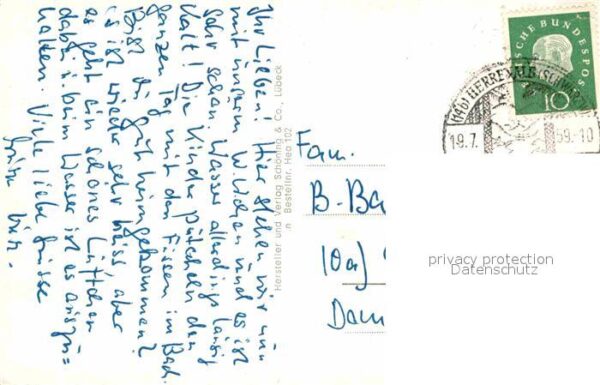 Ihr Lieben! Hier stehen wir nun
mit unserm W.lichen und es ist
sehr schön. Wasser allerdings lausig
kalt! Die Kinder pütscheln den
ganzen Tag mit den Füssen im Bach.
Bist Du gut heimgekommen?
Es ist wieder sehr heiss, aber
es geht ein schönes Lüftchen
dabei u. beim Wasser ist es auszu=
halten. Viele liebe Grüsse
Hersteller und Verlag Schöning & Co., Lübeck
n Bestellnr. Hea 102
Fam.
B-Ba
10a)
Dam
SCHE BUNDESPOS
10
(14b) HERRENALB (SCHWARZW
19.7. 59.-10
privacy protection
Datenschutz